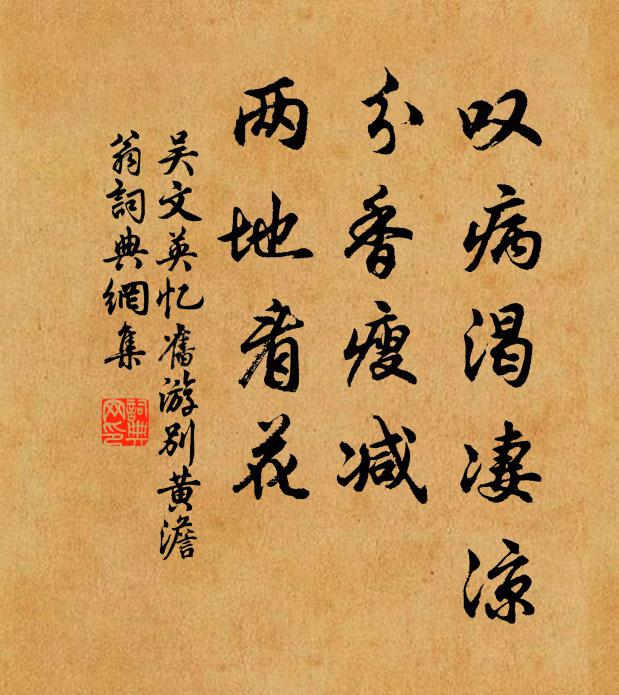 叹病渴凄凉
分香瘦减
两地看花
吴文英忆旧游别黄澹
翁詞典網集
詞典
网印